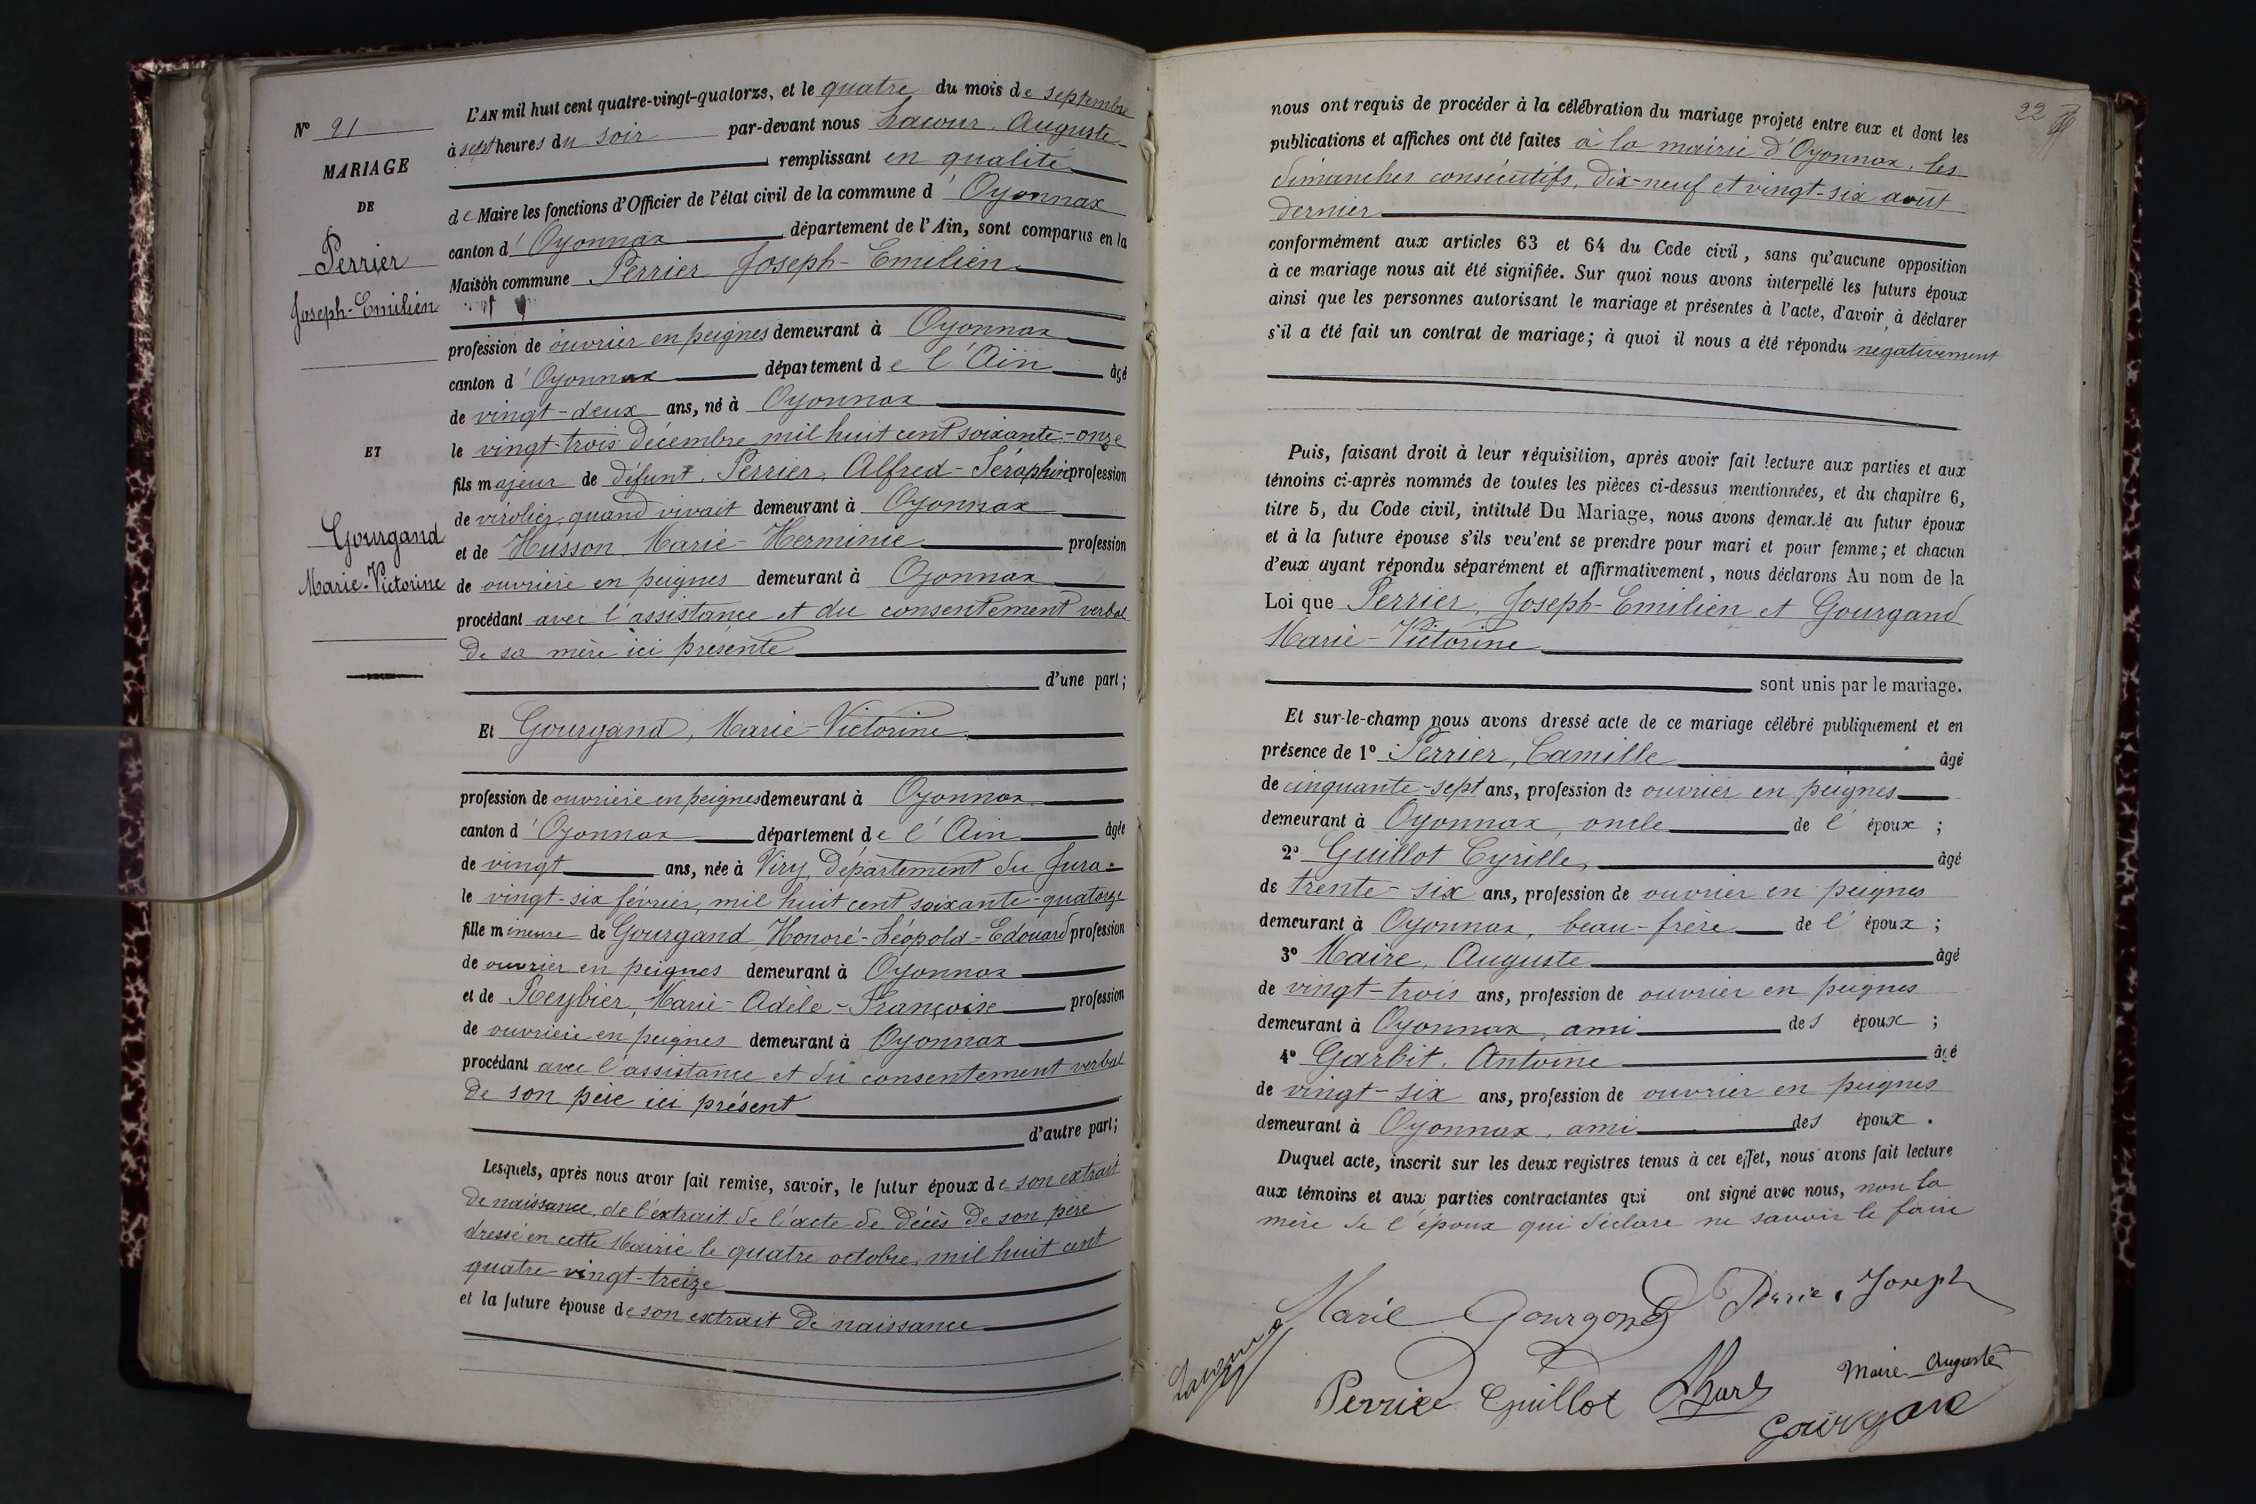 N° 21
MARIAGE
DE
Perrier
Joseph-Emilien
ET
Gourgand
Marie-Victorine
L'AN mil huit cent quatre-vingt-quatorze, et le quatre du mois de septembre
à sept heures du soir par-devant nous Lacour, Auguste
remplissant en qualité
de Maire les fonctions d'Officier de l'état civil de la commune d'Oyonnax
canton d'Oyonnax département de l'Ain, sont comparus en la
Maison commune Perrier Joseph-Emilien
profession de ouvrier en peignes demeurant à Oyonnax
canton d'Oyonnax département de l'Ain âgé
de vingt-deux ans, né à Oyonnax
le vingt-trois Décembre mil huit cent soixante-onze
fils majeur de défunt Perrier, Alfred-Séraphin profession
de virolier, quand vivait demeurant à Oyonnax
et de Husson Marie-Herminie profession
de ouvrière en peignes demeurant à Oyonnax
procédant avec l'assistance et du consentement verbal
de sa mère ici présente
d'une part;
Et Gourgand, Marie-Victorine
profession de ouvrière en peignes demeurant à Oyonnax
canton d'Oyonnax département de l'Ain âgée
de vingt ans, née à Viry, Département du Jura
le vingt-six février, mil huit cent soixante-quatorze
fille mineure de Gourgand Honoré-Léopold-Edouard profession
de ouvrier en peignes demeurant à Oyonnax
et de Reybier, Marie-Adèle-Françoise profession
de ouvrière en peignes demeurant à Oyonnax
procédant avec l'assistance et du consentement verbal
de son père ici présent
d'autre part;
Lesquels, après nous avoir fait remise, savoir, le futur époux de son extrait
de naissance, de l'extrait de l'acte de décès de son père
dressé en cette Mairie le quatre octobre, mil huit cent
quatre-vingt-treize
et la future épouse de son extrait de naissance
22
nous ont requis de procéder à la célébration du mariage projeté entre eux et dont les
publications et affiches ont été faites à la mairie d'Oyonnax, les
dimanches consécutifs, dix-neuf et vingt-six août
dernier
conformément aux articles 63 et 64 du Code civil, sans qu'aucune opposition
à ce mariage nous ait été signifiée. Sur quoi nous avons interpellé les futurs époux
ainsi que les personnes autorisant le mariage et présentes à l'acte, d'avoir à déclarer
s'il a été fait un contrat de mariage; à quoi il nous a été répondu negativement
Puis, faisant droit à leur réquisition, après avoir fait lecture aux parties et aux
témoins ci-après nommés de toutes les pièces ci-dessus mentionnées, et du chapitre 6,
titre 5, du Code civil, intitulé Du Mariage, nous avons demandé au futur époux
et à la future épouse s'ils veulent se prendre pour mari et pour femme; et chacun
d'eux ayant répondu séparément et affirmativement, nous déclarons Au nom de la
Loi que Perrier, Joseph-Emilien et Gourgand
Marie-Victorine
sont unis par le mariage.
Et sur-le-champ nous avons dressé acte de ce mariage célébré publiquement et en
présence de 1° Perrier, Camille âgé
de cinquante-sept ans, profession de ouvrier en peignes
demeurant à Oyonnax, oncle de l'époux;
2° Guillot Cyrille, âgé
de trente-six ans, profession de ouvrier en peignes
demeurant à Oyonnax, beau-frère de l'époux;
3° Maire, Auguste âgé
de vingt-trois ans, profession de ouvrier en peignes
demeurant à Oyonnax, ami des époux;
4° Garbit, Antoine âgé
de vingt-six ans, profession de ouvrier en peignes
demeurant à Oyonnax, ami des époux.
Duquel acte, inscrit sur les deux registres tenus à cet effet, nous avons fait lecture
aux témoins et aux parties contractantes qui ont signé avec nous, non la
mère de l'époux qui déclare ne savoir le faire
Marie Gourgand Perrier Joseph
Lacour A
Perrier Guillot Maire Auguste
Gourgand